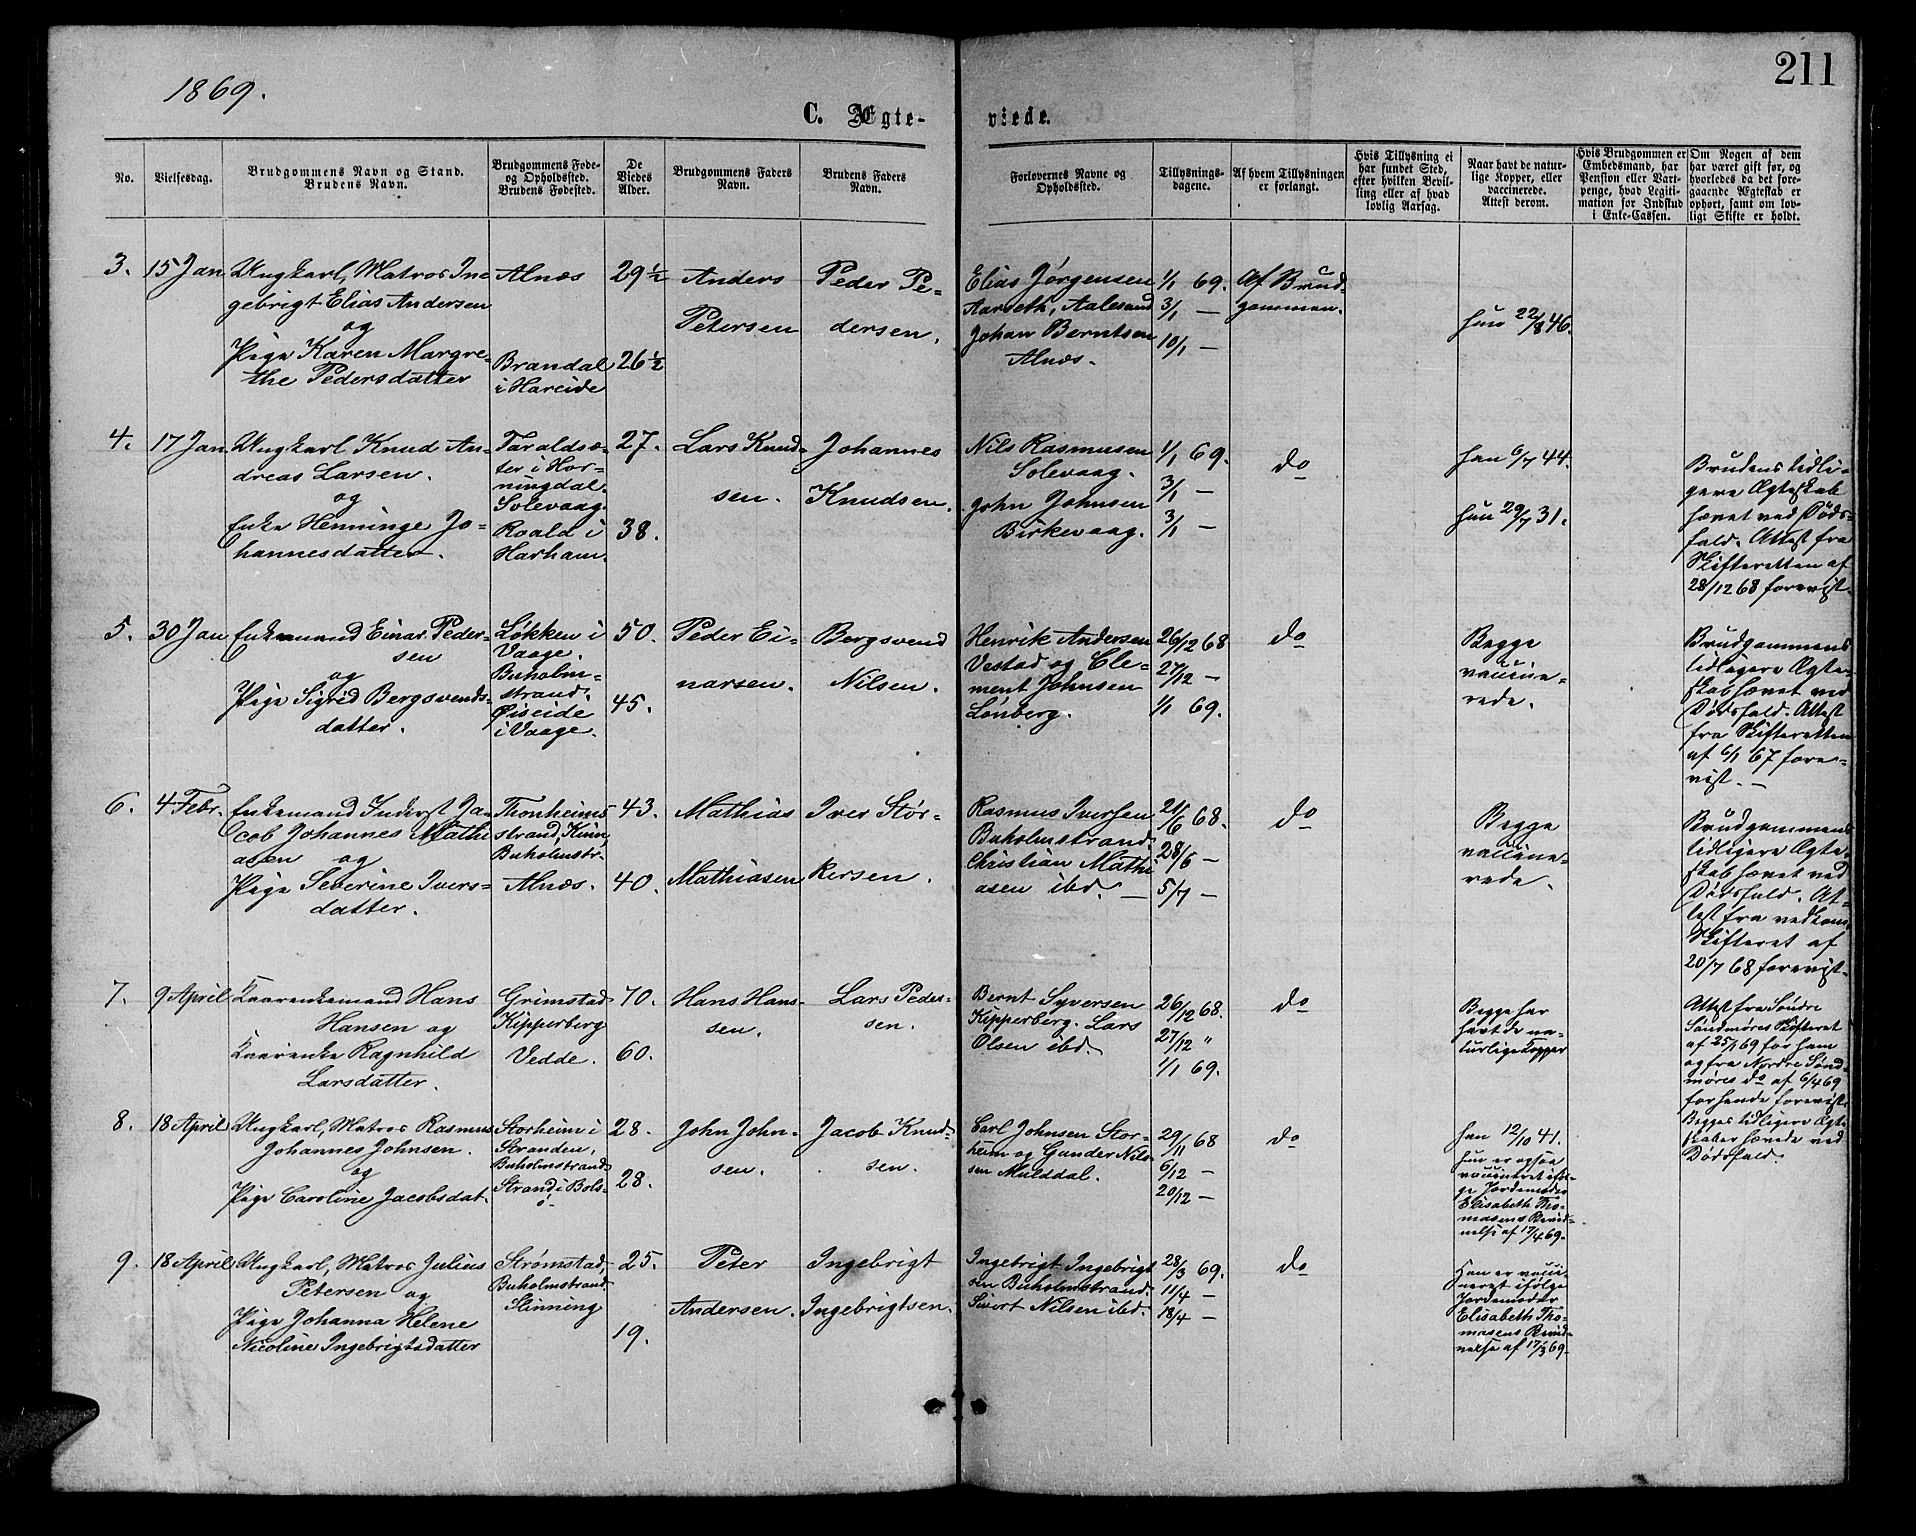 1869.
211
C. Ægte-
viede.
No.
Vielsesdag.
Brudgommens Navn og Stand.
Brudens Navn.
Brudgommens Føde-
og Opholdssted.
Brudens Fødested.
De
Viedes
Alder.
Brudgommens Faders
Navn.
Brudens Faders
Navn.
Forlovernes Navne og
Opholdssted.
Tillysnings-
dagene.
Af hvem Tillysningen
er forlangt.
Hvis Tillysning ei
har fundet Sted,
efter hvilken Bevil-
ling eller af hvad
lovlig Aarsag.
Naar havt de natur-
lige Kopper, eller
vaccinerede.
Attest derom.
Hvis Brudgommen er
Embedsmand, har
Pension eller Vart-
penge, hvad Legiti-
mation for Indskud
i Enke-Cassen.
Om Nogen af dem
har været gift før, og
hvorledes da det fore-
gaaende Ægteskab er
ophørt, samt om lov-
ligt Skifte er holdt.
3.
15 Jan
Ungkarl, Matros In-
gebrigt Elias Andersen
og
Pige Karen Margre-
the Pedersdatter
Alnæs
Brandal
i Hareide
29 ½
26 ½
Anders
Petersen
Peder Pe-
dersen.
Elias Jørgensen
Aarseth, Aalesund
Johan Berntsen
Alnæs.
1/1 69.
3/1 —
10/1 —
Af Brud-
gommen.
hun 22/8 46.
4.
17 Jan
Ungkarl Knud An-
dreas Larsen.
og
Enke Henninge Jo-
hannesdatter.
Taraldsæ-
ter i Hor-
ningdal.
Solevaag.
Roald i
Harham.
27.
38.
Lars Knud-
sen.
Johannes
Knudsen.
Nils Rasmusen
Solevaag.
John Johnsen
Birkevaag.
1/1 69.
3/1 —
3/1 —
do
han 6/7 44.
hun 29/7 31.
Brudens tidli-
gere Ægteskab
hævet ved Døds-
fald. Attest fra
Skifteretten af
28/12 68 forevist.
5.
30 Jan
Enkemand Einar Peder-
sen
og
Pige Sigrid Bergsvends-
datter.
Løkken i
Vaage.
Buholm-
strand.
Øiseide
i Vaage.
50.
45.
Peder Ei-
narsen.
Bergsvend
Nilsen.
Henrik Andersen
Vestad og Cle-
ment Johnsen
Lønberg.
26/12 68
27/12 —
1/1 69.
do
Begge
vaccine-
rede.
Brudgommens
tidligere Ægte-
skab hævet ved
Dødsfald. Attest
fra Skifteretten
af 6/1 67 fore-
vist. —
6.
4 Febr.
Enkemand Inderst Ja-
cob Johannes Mathi
asen og
Pige Severine Ivers-
datter.
Thonheims
strand,
Buholmstr.
Alnæs.
43.
40.
Mathias
Mathiasen
Iver Stør-
kersen.
Rasmus Iversen
Buholmstrand.
Christian Mathi
asen ibd. —
21/6 68.
28/6 —
5/7 —
do
Begge
vaccine-
rede.
Brudgommens
tidligere Ægte-
skab hævet ved
Dødsfald. At-
test fra vedkom
Skifteret af
20/7 68 forevist.
7.
9 April
Kaarenkemand Hans
Hansen og
Kaarenke Ragnhild
Larsdatter.
Grimstad
Kipperberg
Vedde.
70.
60.
Hans Han-
sen.
Lars Peder-
sen.
Bernt Syversen
Kipperberg. Lars
Olsen ibd.
26/12 68.
27/12 "
1/1 69.
do
Begge har
havt de na-
turlige Kopper
Attest fra Søndre
Søndmøres Skifteret
af 25/1 69 for ham
og fra Nordre Sønd-
møres do af 6/4 69
for hende forevist.
Begges tidligere Ægte-
skaber hævede ved
Dødsfald.
8.
18 April
Ungkarl, Matros Rasmus
Johannes Johnsen.
og
Pige Caroline Jacobsdat.
Storheim i
Stranden,
Buholmstrand.
Strand i Bols-
ø.
28.
28.
John John-
sen.
Jacob Knud-
sen.
Carl Johnsen Stor-
heim og Gunder Nils-
sen Mulddal.
29/11 68
6/12 —
20/12 —
do
han 12/10 41.
hun er ogsaa
vaccineret iføl-
ge Jordemoder
Elisabeth Tho-
masens Bevid-
nelse af 17/4 69.
9.
18 April
Ungkarl, Matros Julius
Petersen og
Pige Johanna Helene
Nicoline Ingebrigtsdatter
Strømstad,
Buholmstrand.
Slinning
25.
19.
Peter
Andersen.
Ingebrigt
Ingebrigtsen.
Ingebrigt Ingebrigt
sen Buholmstrand.
Sivert Nilsen ibd.
28/3 69.
11/4 —
18/4 —
do
Hun er vacci-
neret ifølge
Jordemoder
Elisabeth Tho-
masens Bevid-
nelse af 17/3 69.